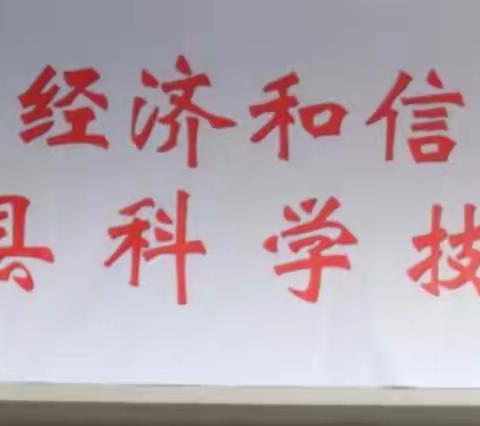 经济和信
县科学技